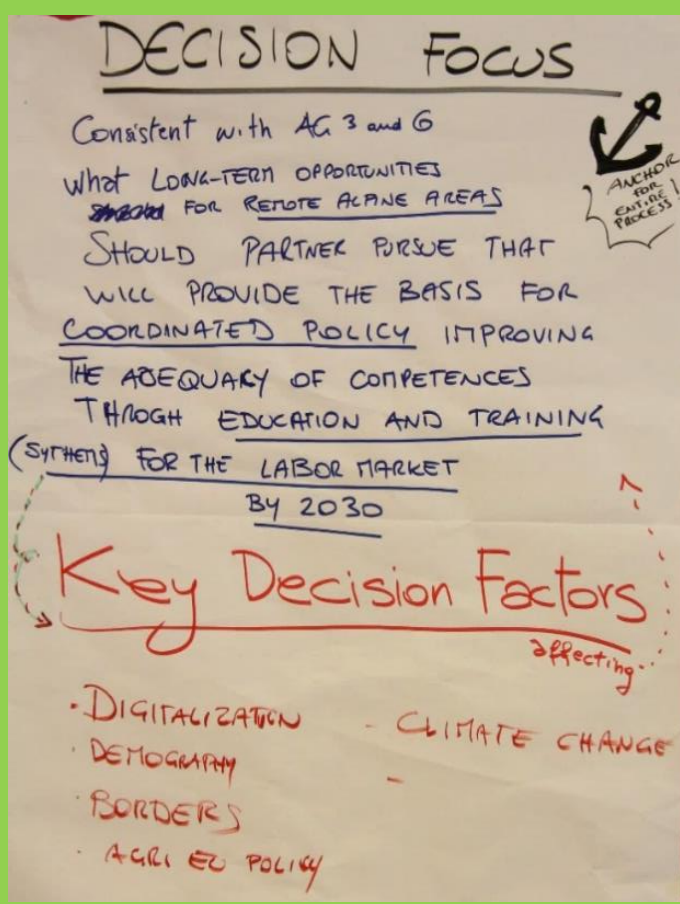 DECISION FOCUS
Consistent with AG 3 and 6
What LONG-TERM OPPORTUNITIES
FOR REMOTE ALPINE AREAS
SHOULD PARTNER PURSUE THAT
WILL PROVIDE THE BASIS FOR
COORDINATED POLICY IMPROVING
THE ADEQUARY OF COMPETENCES
THROGH EDUCATION AND TRAINING
(SYTHEMS) FOR THE LABOR MARKET
BY 2030
ANCHOR
FOR
ENTIRE
PROCESS!
Key Decision Factors
affecting
· DIGITALIZATION
· DEMOGRAPHY
· BORDERS
· AGRI EU POLICY
- CLIMATE CHANGE
-